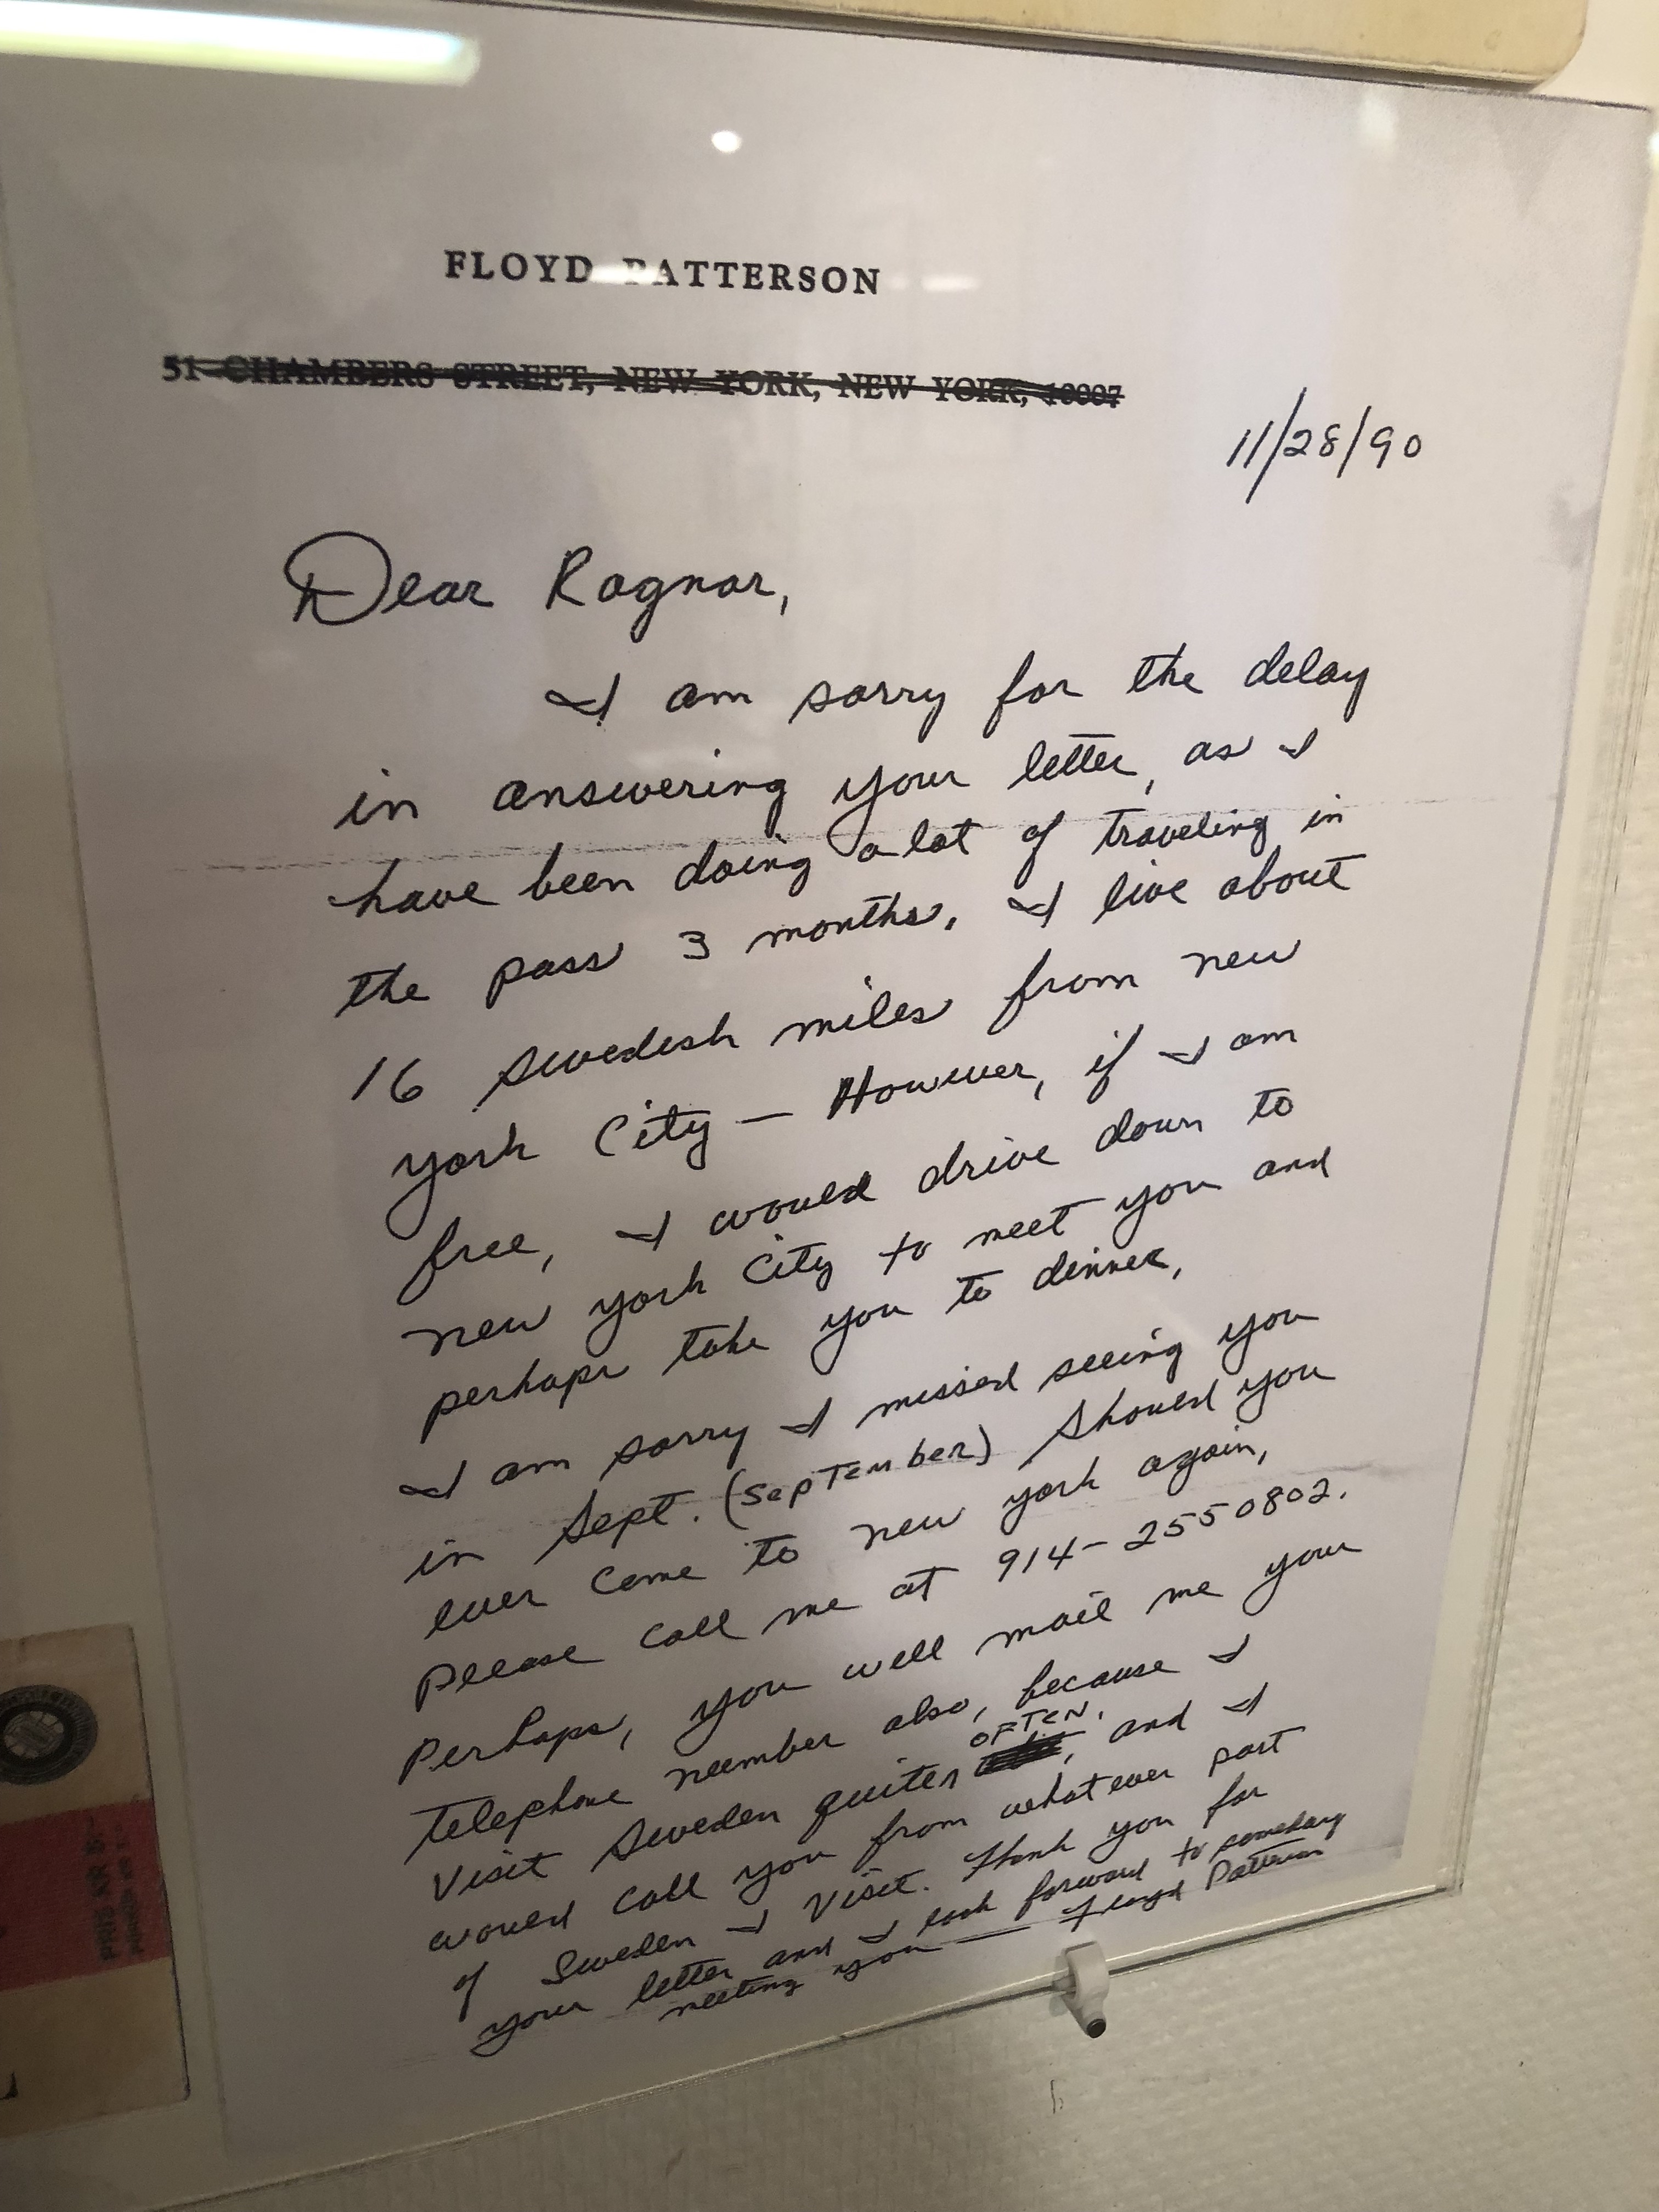 FLOYD PATTERSON
51 CHAMBERS STREET, NEW YORK, NEW YORK, 10007
11/28/90
Dear Ragnar,
I am sorry for the delay
in answering your letter, as I
have been doing a lot of traveling in
the pass 3 months. I live about
16 Swedish miles from new
york City — However, if I am
free, I would drive down to
new york City to meet you and
perhaps take you to dinner,
I am sorry I missed seeing you
in Sept. (SepTember) Should you
ever come to new york again,
please call me at 914-2550802.
Perhaps, you will mail me your
telephone number also, because I
OFTEN.
Visit Sweden quiten , and I
would call you from whatever part
of Sweden I Visit. Thank you for
your letter and I look forward to someday
meeting you — Floyd Patterson
PRIS KR 5:-